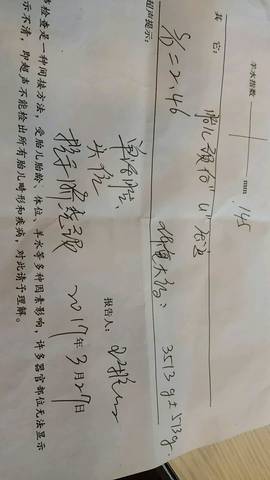 羊水指数: mm 145
其 它: 胎儿颈后"U"压迹
S/D=2.46 估重大约: 3513g±513g.
超声提示:
单活胎,
头位
报告人:
2017年3月27日
检查是一种间接方法,受胎儿胎龄、体位、羊水等多种因素影响,许多器官部位无法显示
示不清,即超声不能检出所有胎儿畸形和疾病,对此请予理解。